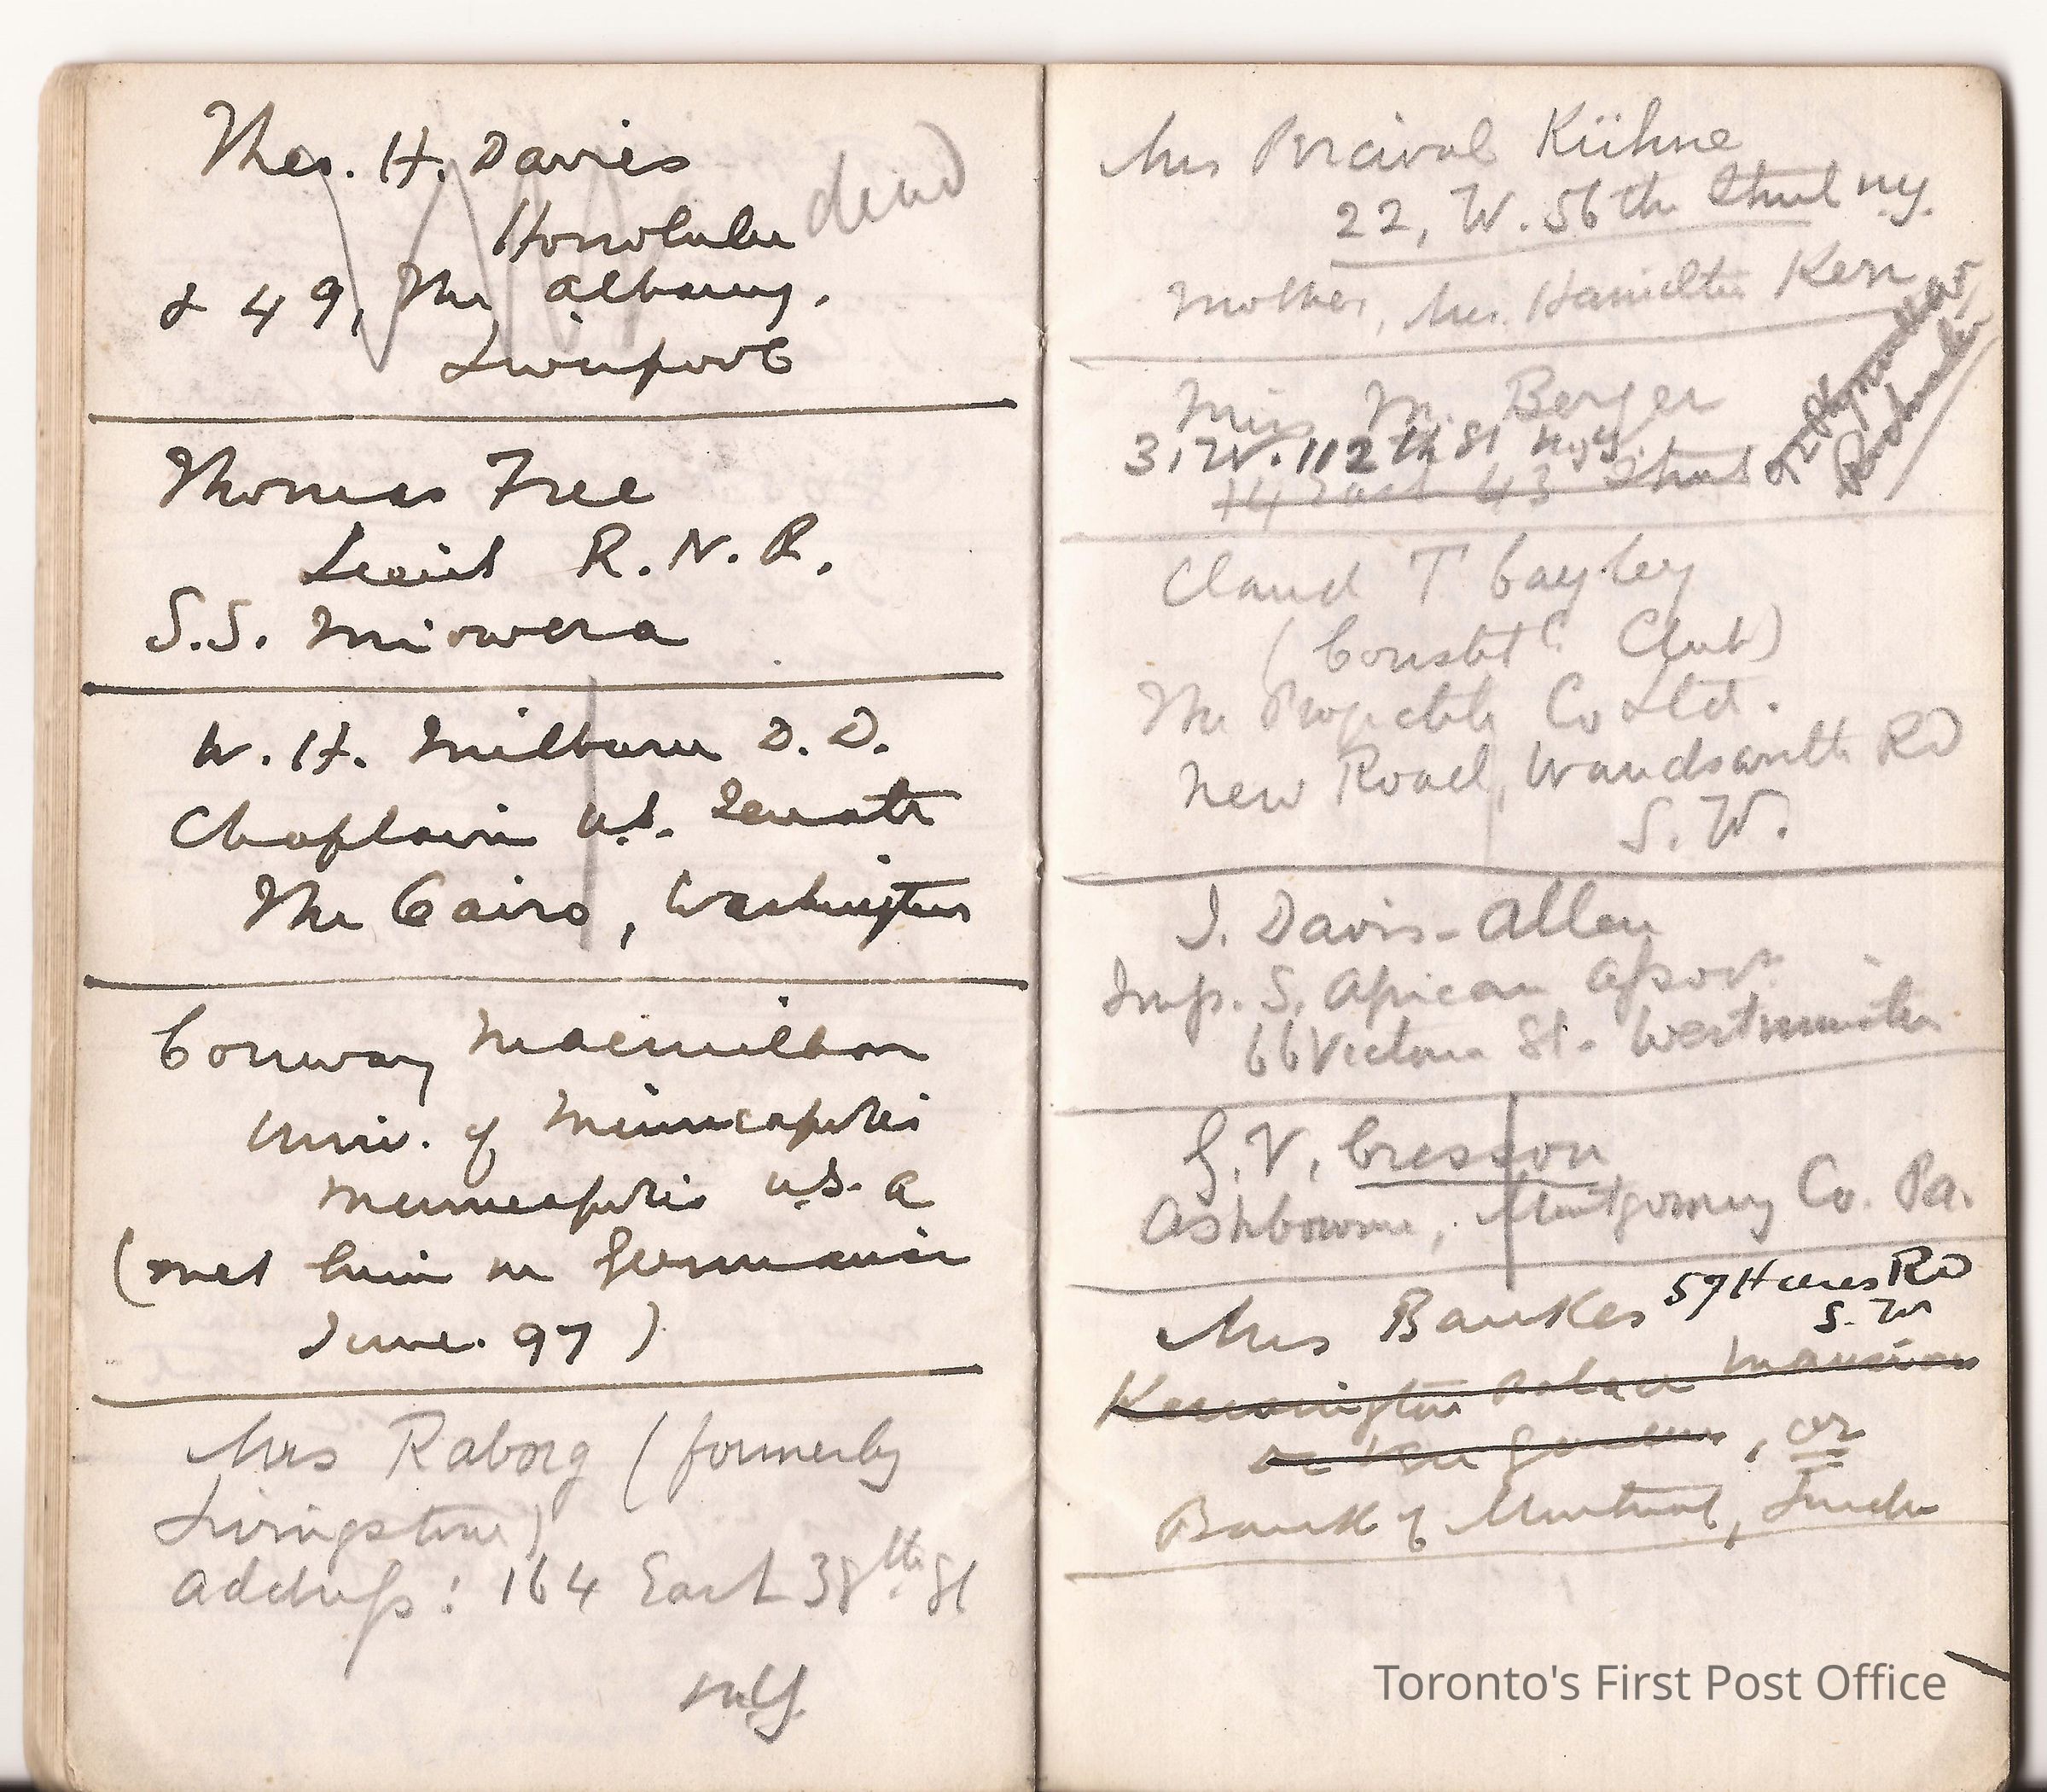 Theo. H. Davies
Honolulu dead
& 49, The Albany.
Liverpool
Thomas Free
Lieut R.N.R.
S.S. Miowera
W. H. Milburn D.D.
Chaplain U.S. Senate
The Cairo, Washington
Conway Macmillan
Univ. of Minneapolis
Minneapolis U.S.A
(met him in Germanic
June. 97)
Mrs Raborg (formerly
Livingstone)
Address: 164 East 38th St
N.Y.
Mrs Percival Kühne
22, W. 56th Street N.Y.
Mother, Mrs. Hamilton Kerr
Miss M. Berger
31 W. 112th St N.Y.
14 East 43 Street
Claud T Cayley
(Constl. Club)
The Projectile Co Ltd.
New Road, Wandsworth RD
S.W.
J. Davis-Allen
Imp. S. African Assocn.
66 Victoria St. Westminster
G. V. Cresson
Ashbourne, Montgomery Co. Pa.
Mrs Bankes 59 RD
S.W
Kensington Palace Mansions
De Vere Gardens, or
Bank of Montreal,
Toronto's First Post Office